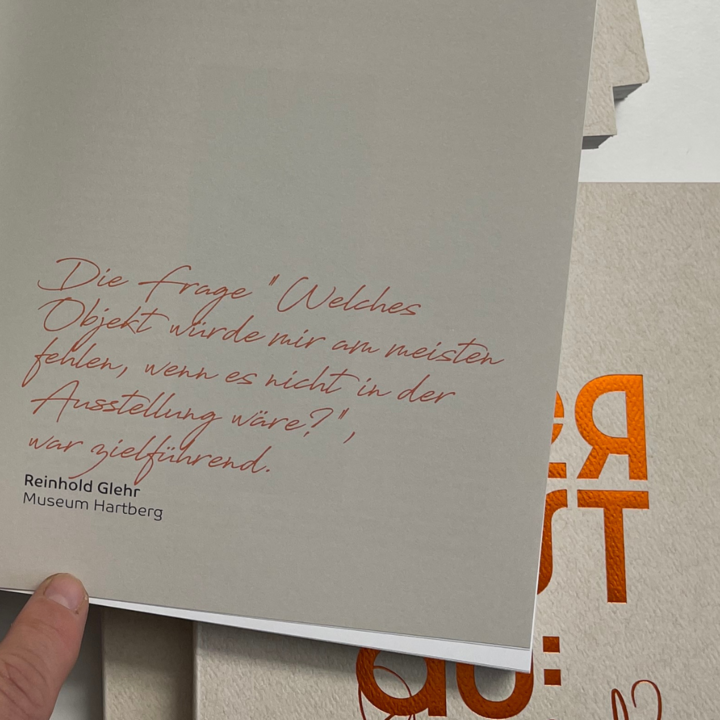 Die Frage "Welches
Objekt würde mir am meisten
fehlen, wenn es nicht in der
Ausstellung wäre?",
war zielführend.
Reinhold Glehr
Museum Hartberg